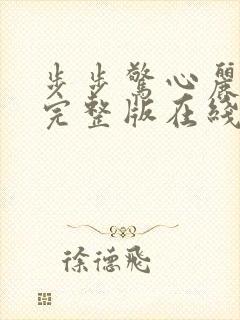 步步驚心麗
完整版在綫
徐德飛